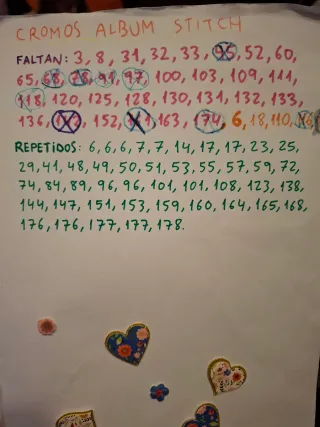 CROMOS ALBUM STITCH
FALTAN: 3, 8, 31, 32, 33, 95, 52, 60,
65, 68, 78, 91, 97, 100, 103, 109, 111,
118, 120, 125, 128, 130, 131, 132, 133,
136, 152, 163, 174, 6, 18, 110,
REPETIDOS: 6, 6, 6, 7, 7, 14, 17, 17, 23, 25,
29, 41, 48, 49, 50, 51, 53, 55, 57, 59, 72,
74, 84, 89, 96, 96, 101, 101, 108, 123, 138,
144, 147, 151, 153, 159, 160, 164, 165, 168,
176, 176, 177, 177, 178.